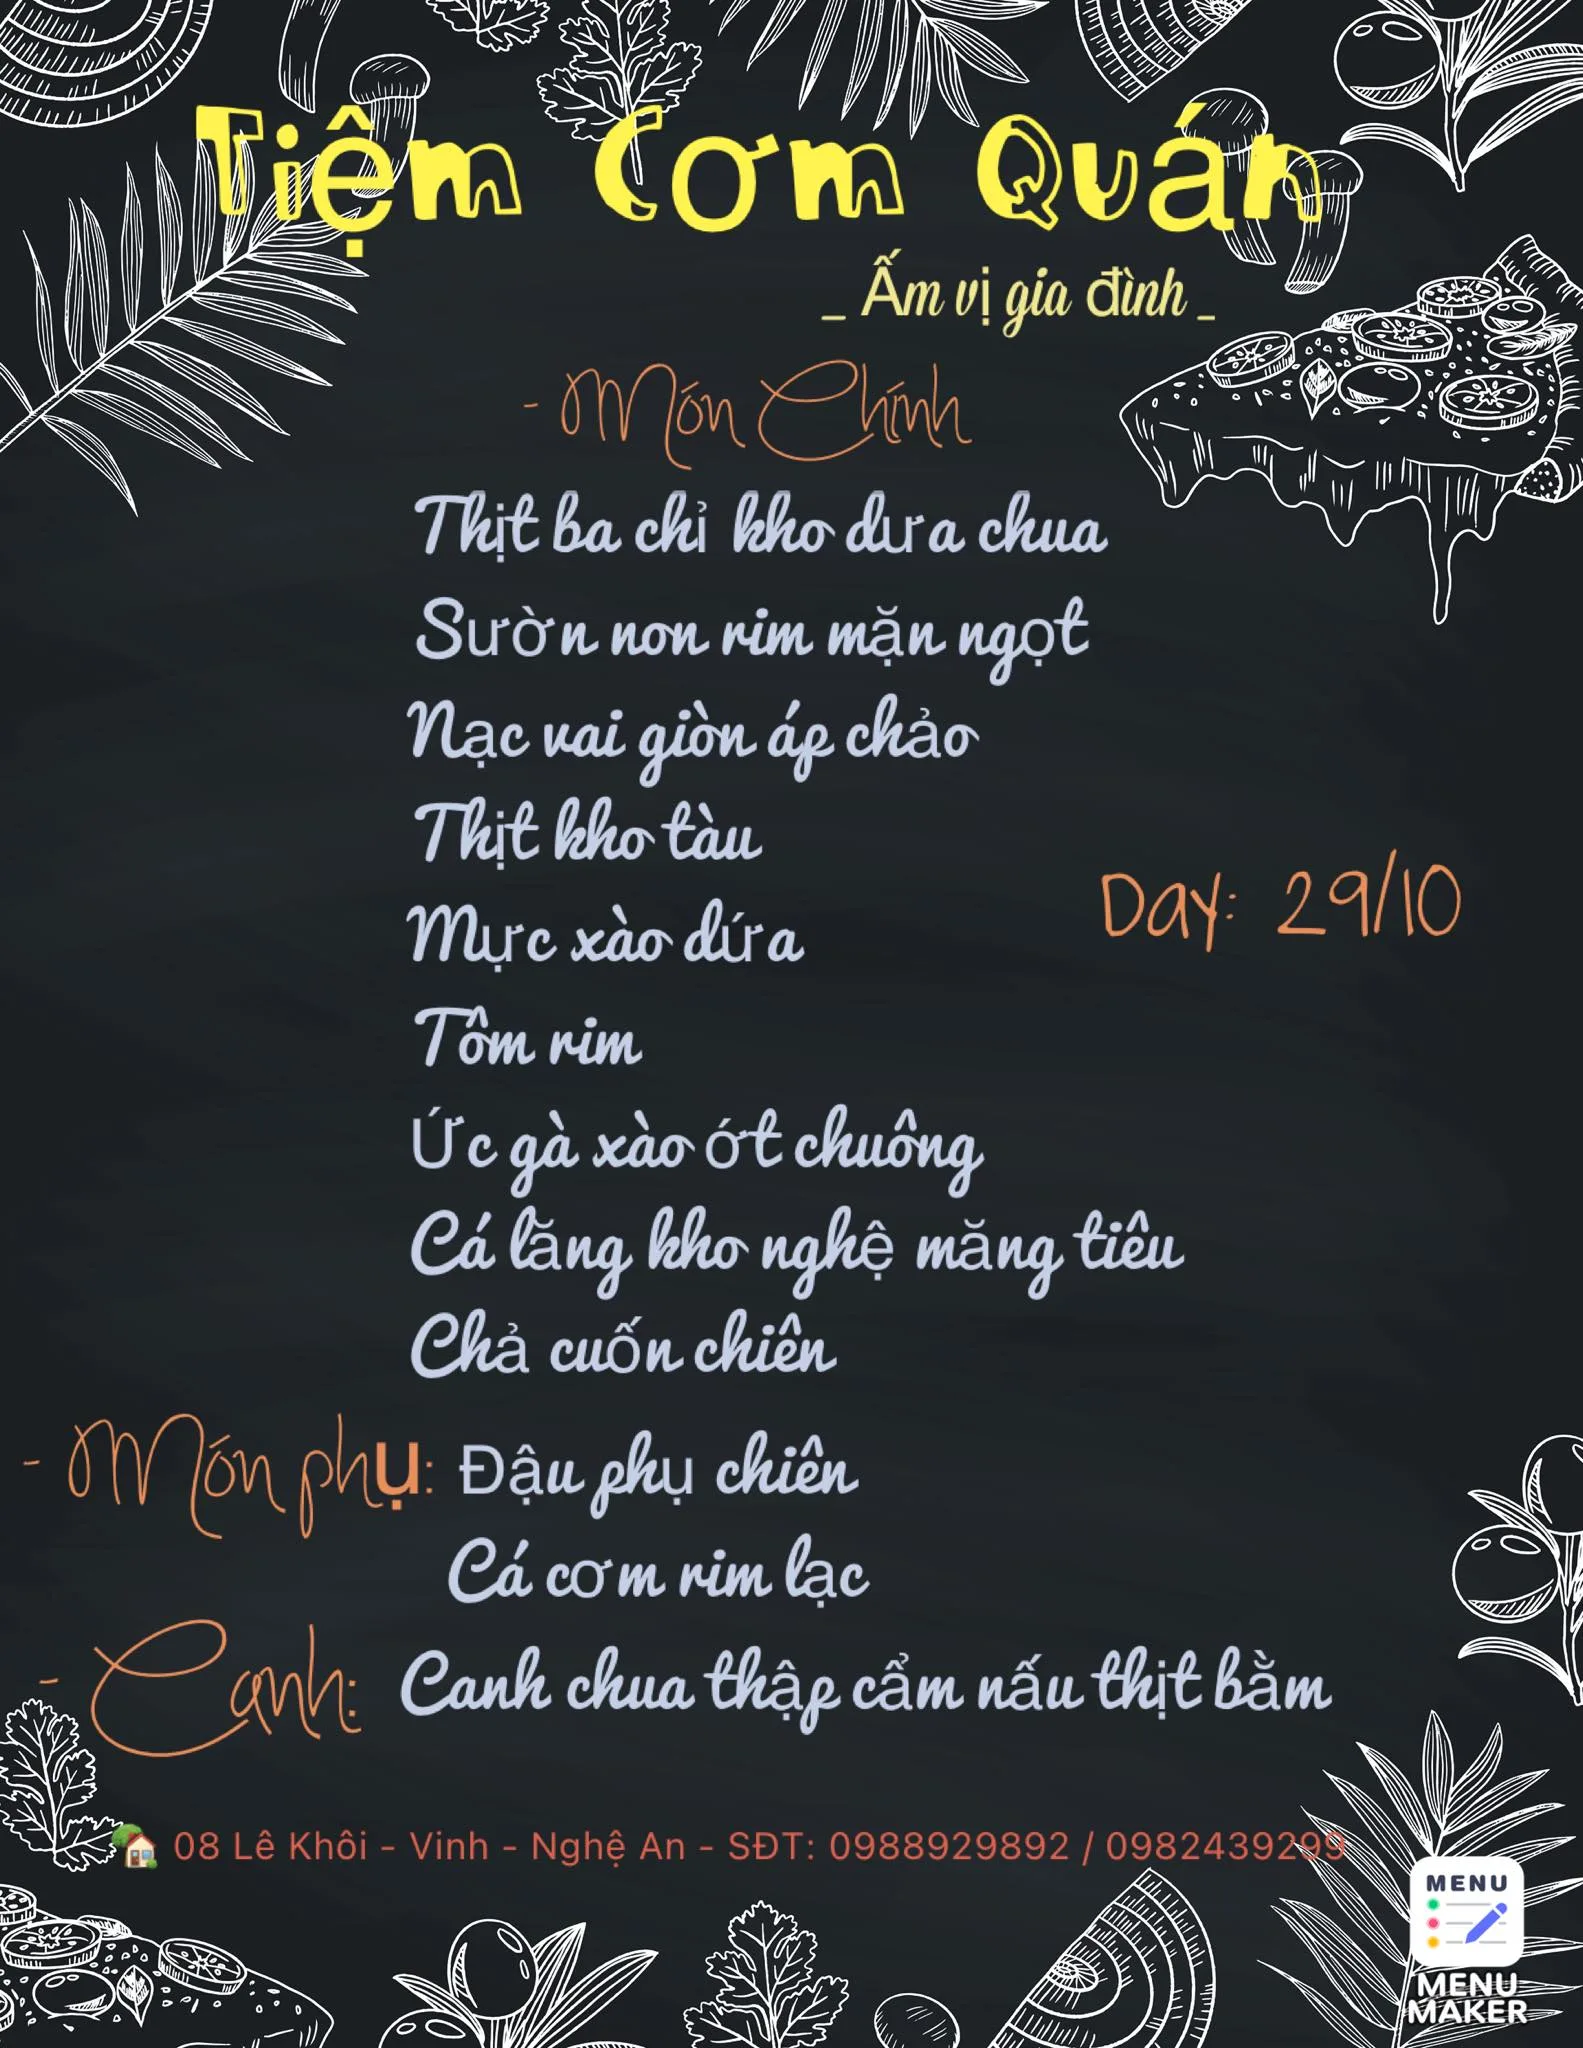 Tiệm Cơm Quán
_ Ấm vị gia đình _
- Món Chính
Thịt ba chỉ kho dưa chua
Sườn non rim mặn ngọt
Nạc vai giòn áp chảo
Thịt kho tàu
Mực xào dứa
Day: 29/10
Tôm rim
Ức gà xào ớt chuông
Cá lăng kho nghệ măng tiêu
Chả cuốn chiên
- Món phụ: Đậu phụ chiên
Cá cơm rim lạc
- Canh: Canh chua thập cẩm nấu thịt bằm
08 Lê Khôi - Vinh - Nghệ An - SĐT: 0988929892 / 0982439299
MENU
MENU
MAKER